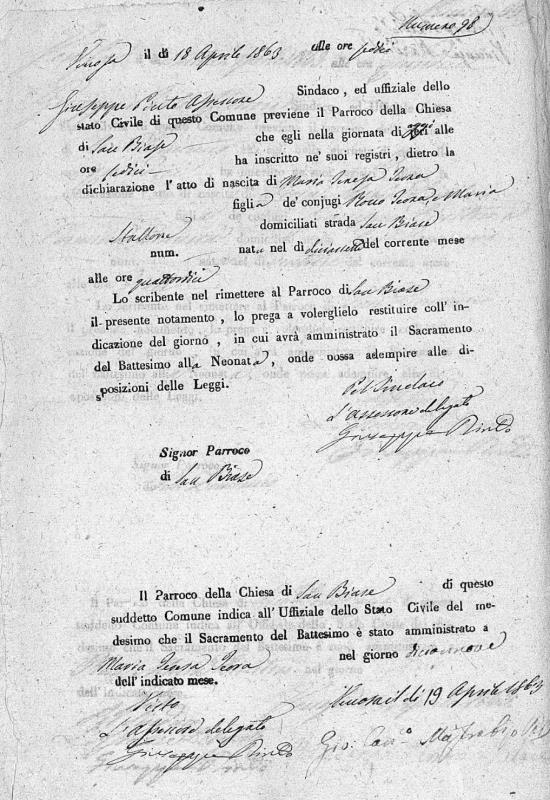 Numero 98
Venosa il dì 18 Aprile 1863 alle ore sedici
Sindaco, ed uffiziale dello
Giuseppe Pinto Assessore
stato Civile di questo Comune previene il Parroco della Chiesa
di San Biase che egli nella giornata di oggi alle
ore sedici ha inscritto ne' suoi registri, dietro la
dichiarazione l'atto di nascita di Maria Teresa
figlia de' conjugi Rocco e Maria
Stallone domiciliati strada San Biase
num. nata nel dì diciassette del corrente mese
alle ore quattordici
Lo scribente nel rimettere al Parroco di San Biase
il presente notamento, lo prega a volerglielo restituire coll' in-
dicazione del giorno, in cui avrà amministrato il Sacramento
del Battesimo alla Neonata, onde possa adempire alle di-
sposizioni delle Leggi.
Pel Sindaco
L'assessore delegato
Giuseppe Pinto
Signor Parroco
di San Biase
Il Parroco della Chiesa di San Biase di questo
suddetto Comune indica all' Uffiziale dello Stato Civile del me-
desimo che il Sacramento del Battesimo è stato amministrato a
Maria Teresa nel giorno diciannove
dell' indicato mese.
Venosa il dì 19 Aprile 1863
Visto
L'assessore delegato
Giuseppe Pinto
Gio: